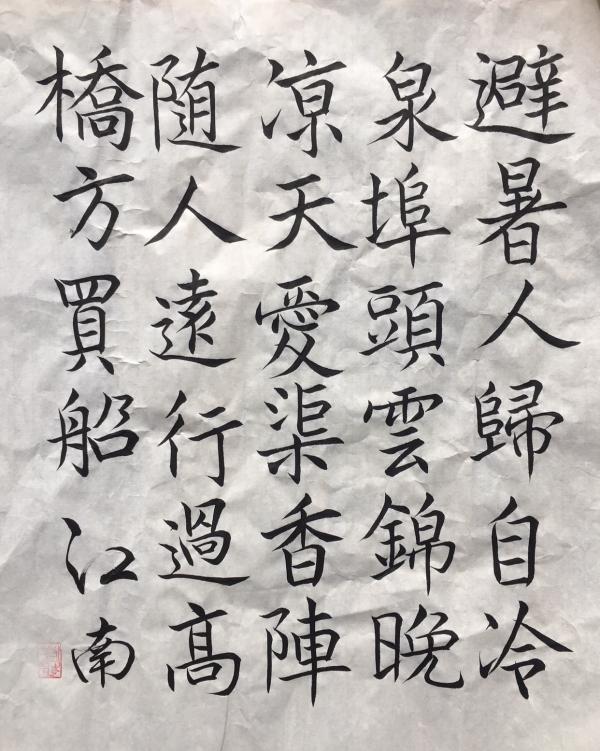 避暑人歸自冷
泉埠頭雲錦晚
凉天愛渠香陣
随人遠行過高
橋方買船
江南